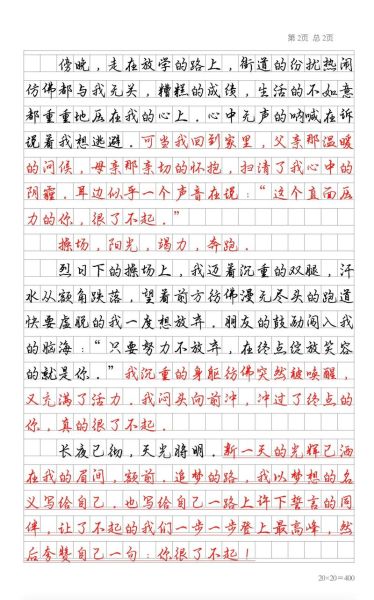 第2页 总2页
傍晚，走在放学的路上，街道的纷扰热闹
仿佛都与我无关，糟糕的成绩，生活的不如意
都重重地压在我的心上，心中无声的呐喊在诉
说着我想逃避。可当我回到家里，父亲那温暖
的问候，母亲那亲切的怀抱，扫清了我心中的
阴霾。耳边似乎一个声音在说：“这个直面压
力的你，很了不起。”
操场，阳光，竭力，奔跑。
烈日下的操场上，我迈着沉重的双腿，汗
水从额角跌落，望着前方仿佛漫无尽头的跑道
快要虚脱的我一度想放弃。朋友的鼓励闯入我
的脑海：“只要努力不放弃，在终点绽放笑容
的就是你。”我沉重的身躯仿佛突然被唤醒，
又充满了活力。我闷头向前冲，冲过了终点的
你，真的很了不起。
长夜已彻，天光将明。新一天的光辉已洒
在我的眉间，额前。追梦的路，我以梦想的名
义写给自己。也写给自己一路上许下誓言的同
伴，让了不起的我们一步一步登上最高峰，然
后夸赞自己一句：你很了不起！
20×20=400